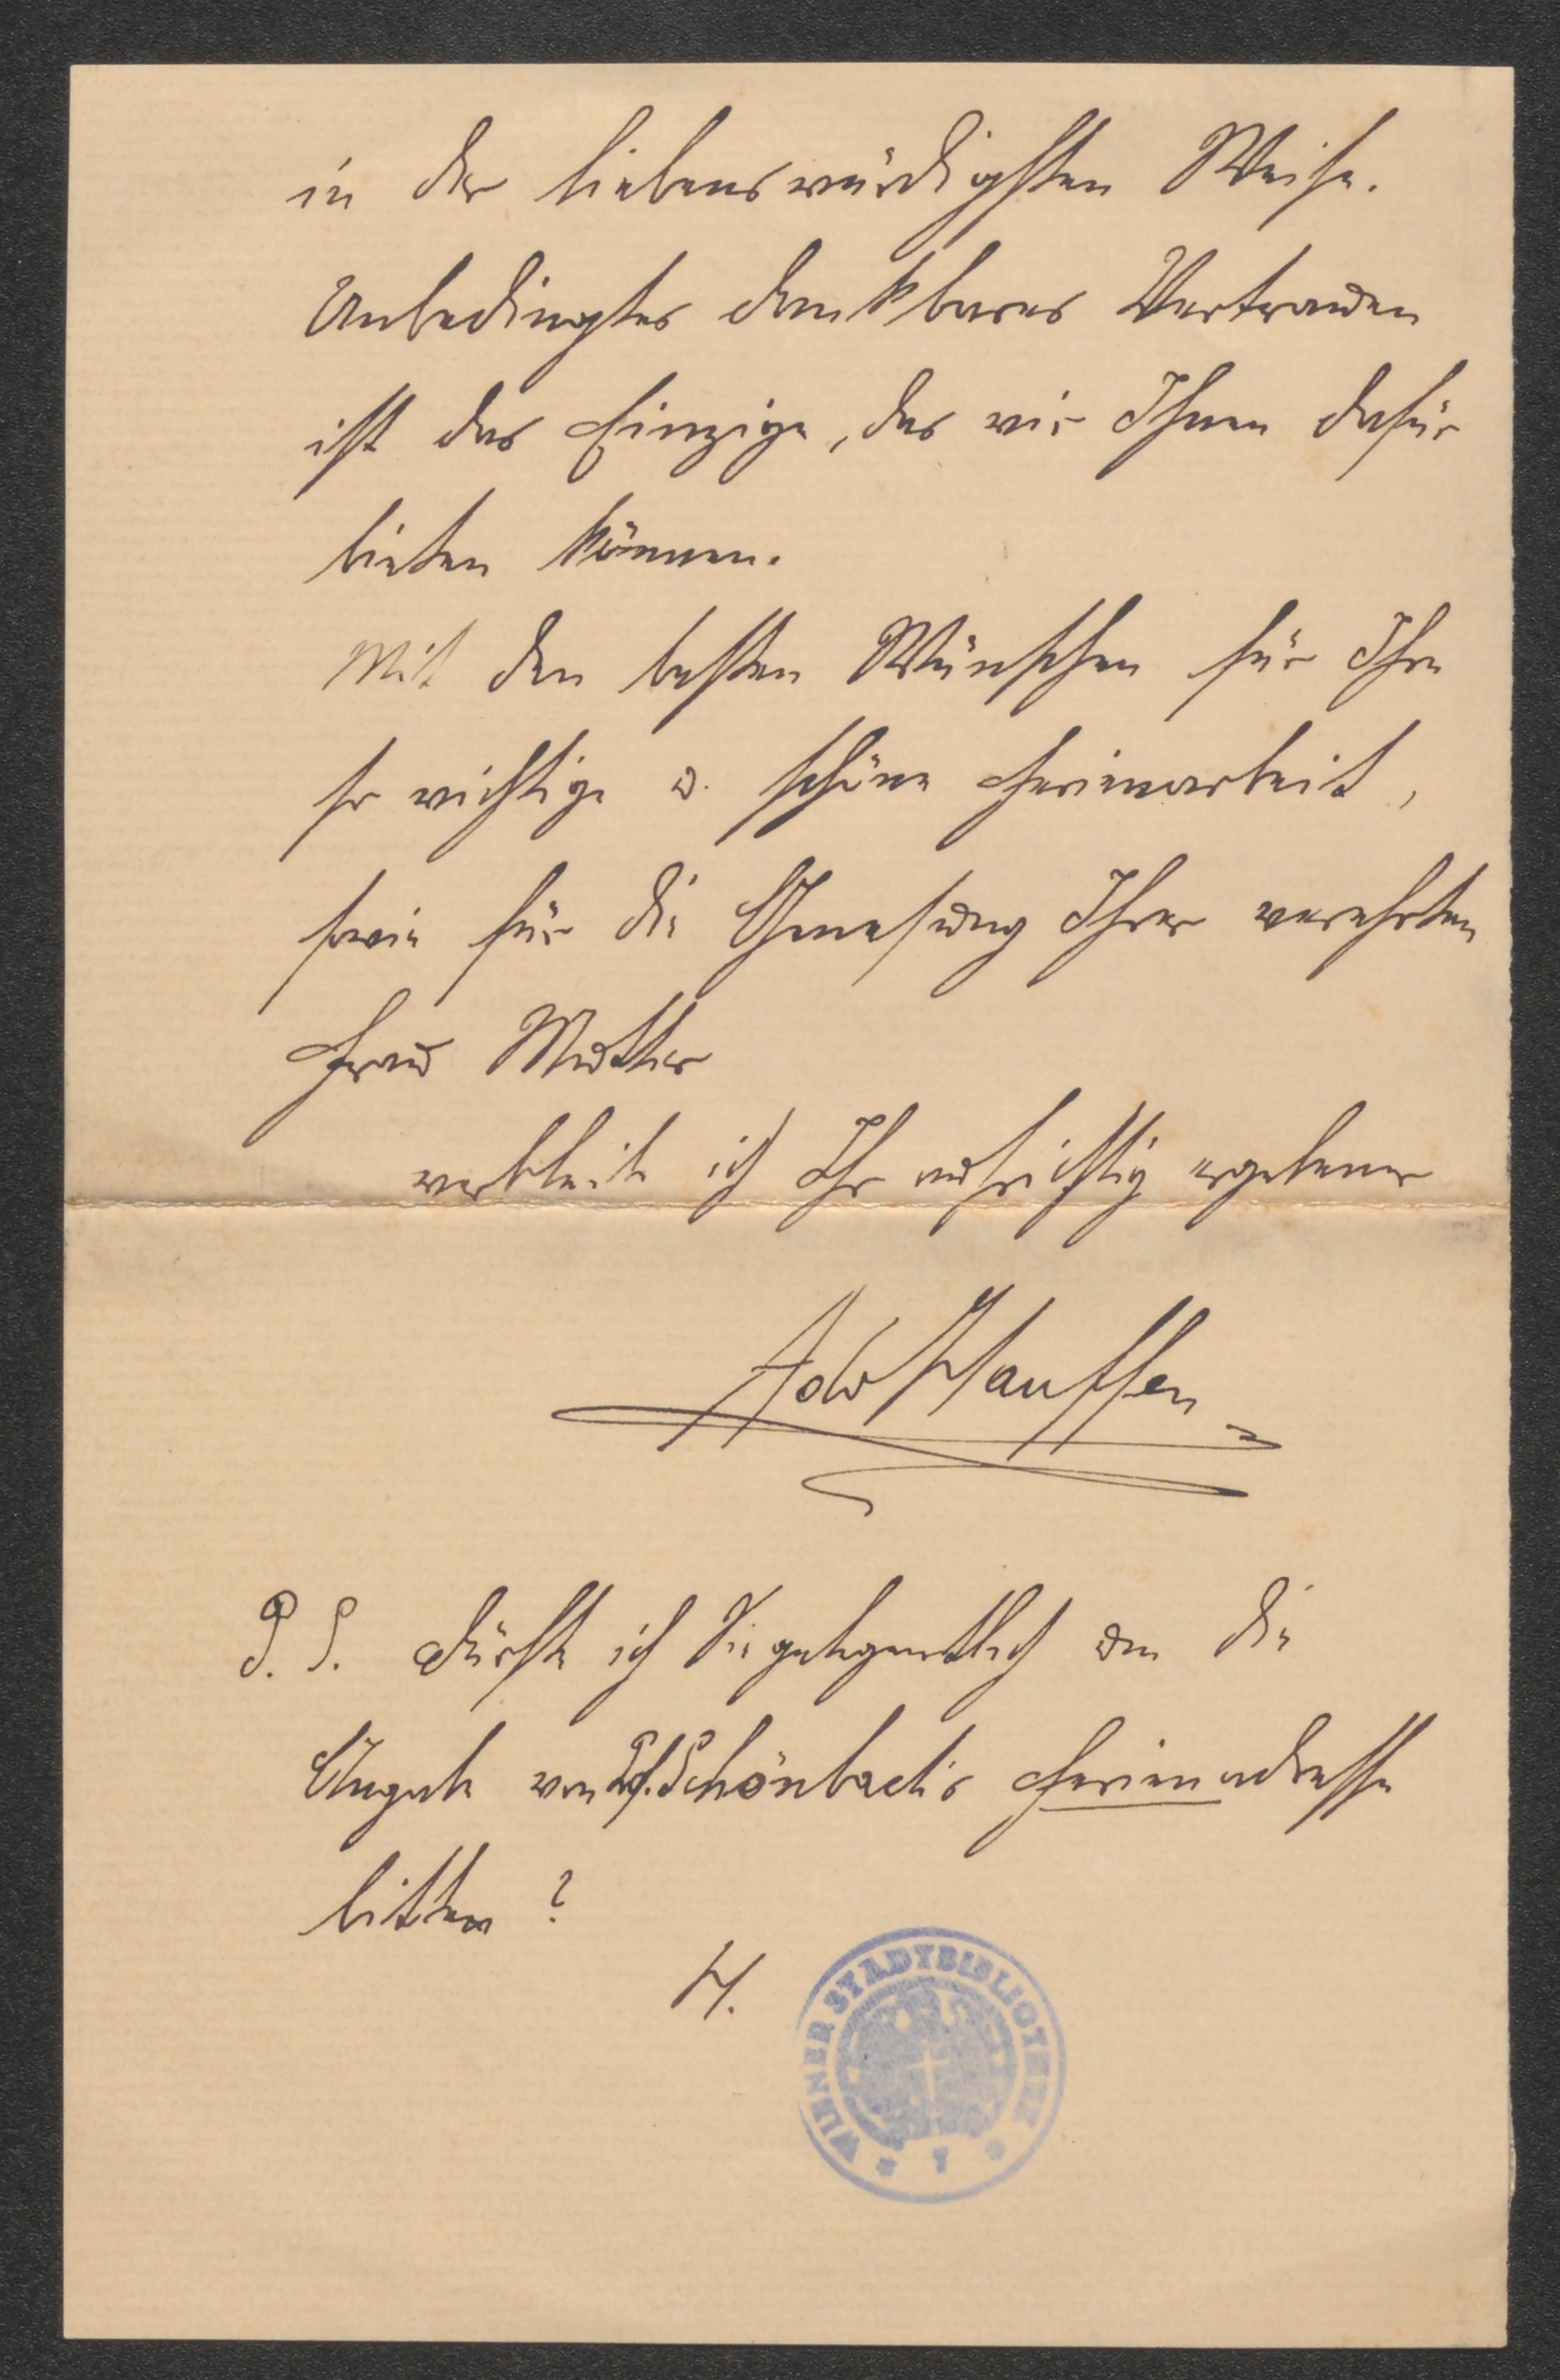 in der liebenswürdigsten Weise.
Unbedingtes dankbares Vertrauen
ist das Einzige, das wir Ihnen dafür
bieten können.
Mit den besten Wünschen für Ihre
so wichtige u. schöne Ferienarbeit,
sowie für die Genesung Ihrer verehrten
Frau Mutter
verbleibe ich Ihr aufrichtig ergebener
Ad Hauffen
P. S. Dürfte ich Sie gelegentlich um die
Angabe von Pf. Schönbach's Ferienadresse
bitten?
H.
WIENER STADTBIBLIOTHEK